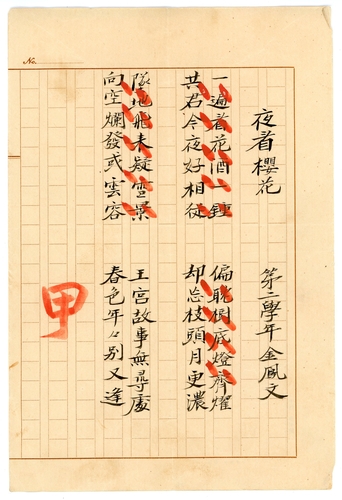 No.
夜看櫻花
第二學年金鳳文
一遍看花酒一鍾
共君今夜好相従
偏眺樹底燈齊耀
却忘枝頭月更濃
墜地飛来疑雪景
向空爛發或雲容
王宮故事無尋處
春色年々別又逢
甲